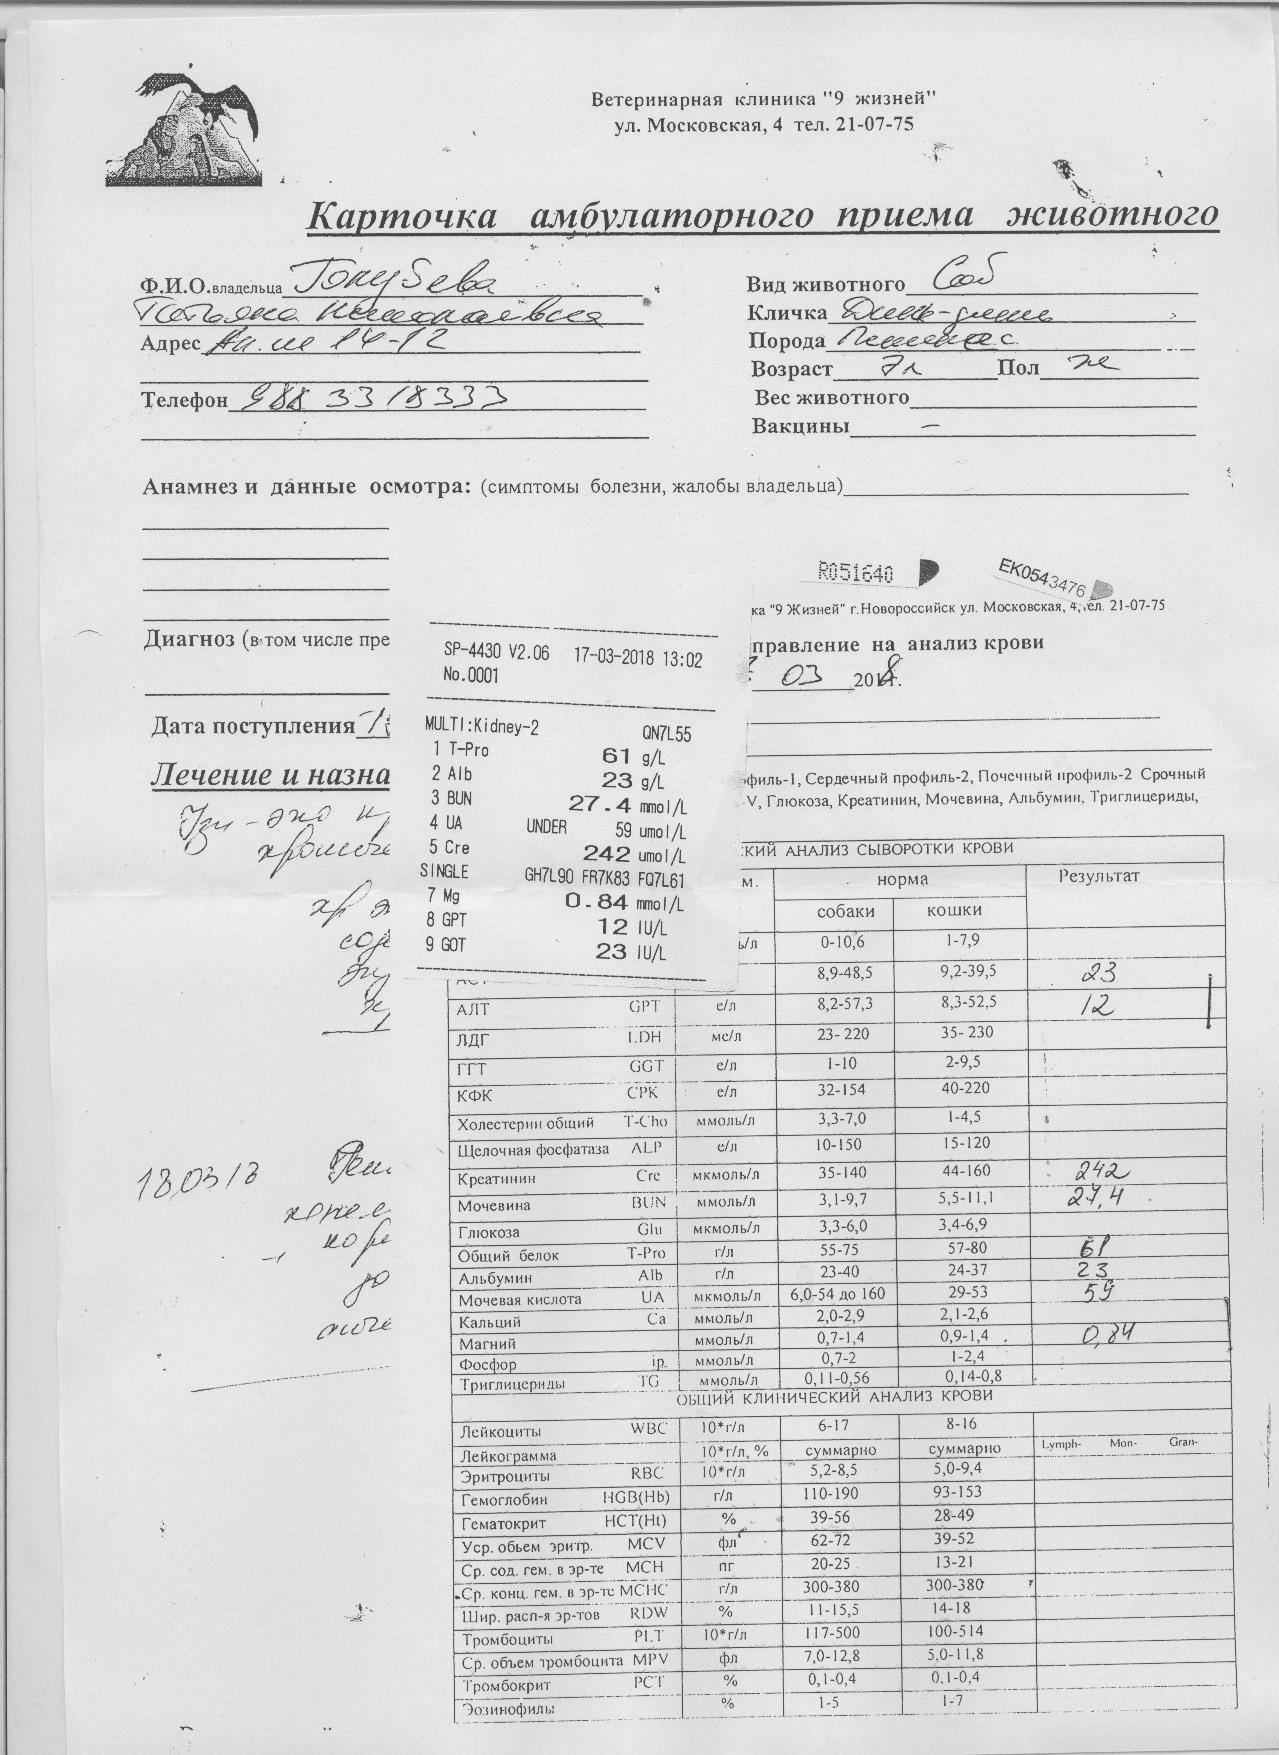 Ветеринарная клиника "9 жизней"
ул. Московская, 4 тел. 21-07-75
Карточка амбулаторного приема животного
Ф.И.О.владельца Голубева
Татьяна Николаевна
Адрес 14-12
Телефон 988 33 18333
Вид животного Соб
Кличка Динь-динь
Порода Пекинес
Возраст 7л Пол ж
Вес животного
Вакцины –
Анамнез и данные осмотра: (симптомы болезни, жалобы владельца)
R051640
EK0543476
ка "9 Жизней" г.Новороссийск ул. Московская, 4, тел. 21-07-75
Диагноз (в том числе пре
правление на анализ крови
03 2018г.
Дата поступления
Лечение и назна
филь-1, Сердечный профиль-2, Почечный профиль-2 Срочный
V, Глюкоза, Креатинин, Мочевина, Альбумин, Триглицериды,
SP-4430 V2.06 17-03-2018 13:02
No.0001
MULTI:Kidney-2 QN7L55
1 T-Pro 61 g/L
2 Alb 23 g/L
3 BUN 27.4 mmol/L
4 UA UNDER 59 umol/L
5 Cre 242 umol/L
SINGLE GH7L90 FR7K83 FQ7L61
7 Mg 0.84 mmol/L
8 GPT 12 IU/L
9 GOT 23 IU/L
Узи-эхо
18.03.18
СКИЙ АНАЛИЗ СЫВОРОТКИ КРОВИ
м. норма Результат
собаки кошки
ь/л 0-10,6 1-7,9
АСТ 8,9-48,5 9,2-39,5 23
АЛТ GPT е/л 8,2-57,3 8,3-52,5 12
ЛДГ LDH ме/л 23-220 35-230
ГГТ GGT е/л 1-10 2-9,5
КФК CPK е/л 32-154 40-220
Холестерин общий T-Cho ммоль/л 3,3-7,0 1-4,5
Щелочная фосфатаза ALP е/л 10-150 15-120
Креатинин Cre мкмоль/л 35-140 44-160 242
Мочевина BUN ммоль/л 3,1-9,7 5,5-11,1 27,4
Глюкоза Glu мкмоль/л 3,3-6,0 3,4-6,9
Общий белок T-Pro г/л 55-75 57-80 61
Альбумин Alb г/л 23-40 24-37 23
Мочевая кислота UA мкмоль/л 6,0-54 до 160 29-53 59
Кальций Ca ммоль/л 2,0-2,9 2,1-2,6
Магний ммоль/л 0,7-1,4 0,9-1,4 0,84
Фосфор ip. ммоль/л 0,7-2 1-2,4
Триглицериды TG ммоль/л 0,11-0,56 0,14-0,8
ОБЩИЙ КЛИНИЧЕСКИЙ АНАЛИЗ КРОВИ
Лейкоциты WBC 10*г/л 6-17 8-16
Лейкограмма 10*г/л, % суммарно суммарно Lymph- Mon- Gran-
Эритроциты RBC 10*г/л 5,2-8,5 5,0-9,4
Гемоглобин HGB(Hb) г/л 110-190 93-153
Гематокрит HCT(Ht) % 39-56 28-49
Уср. обьем эритр. MCV фл 62-72 39-52
Ср. сод. гем. в эр-те MCH пг 20-25 13-21
Ср. конц. гем. в эр-те MCHC г/л 300-380 300-380
Шир. расп-я эр-тов RDW % 11-15,5 14-18
Тромбоциты PLT 10*г/л 117-500 100-514
Ср. объем тромбоцита MPV фл 7,0-12,8 5,0-11,8
Тромбокрит PCT % 0,1-0,4 0,1-0,4
Эозинофилы % 1-5 1-7